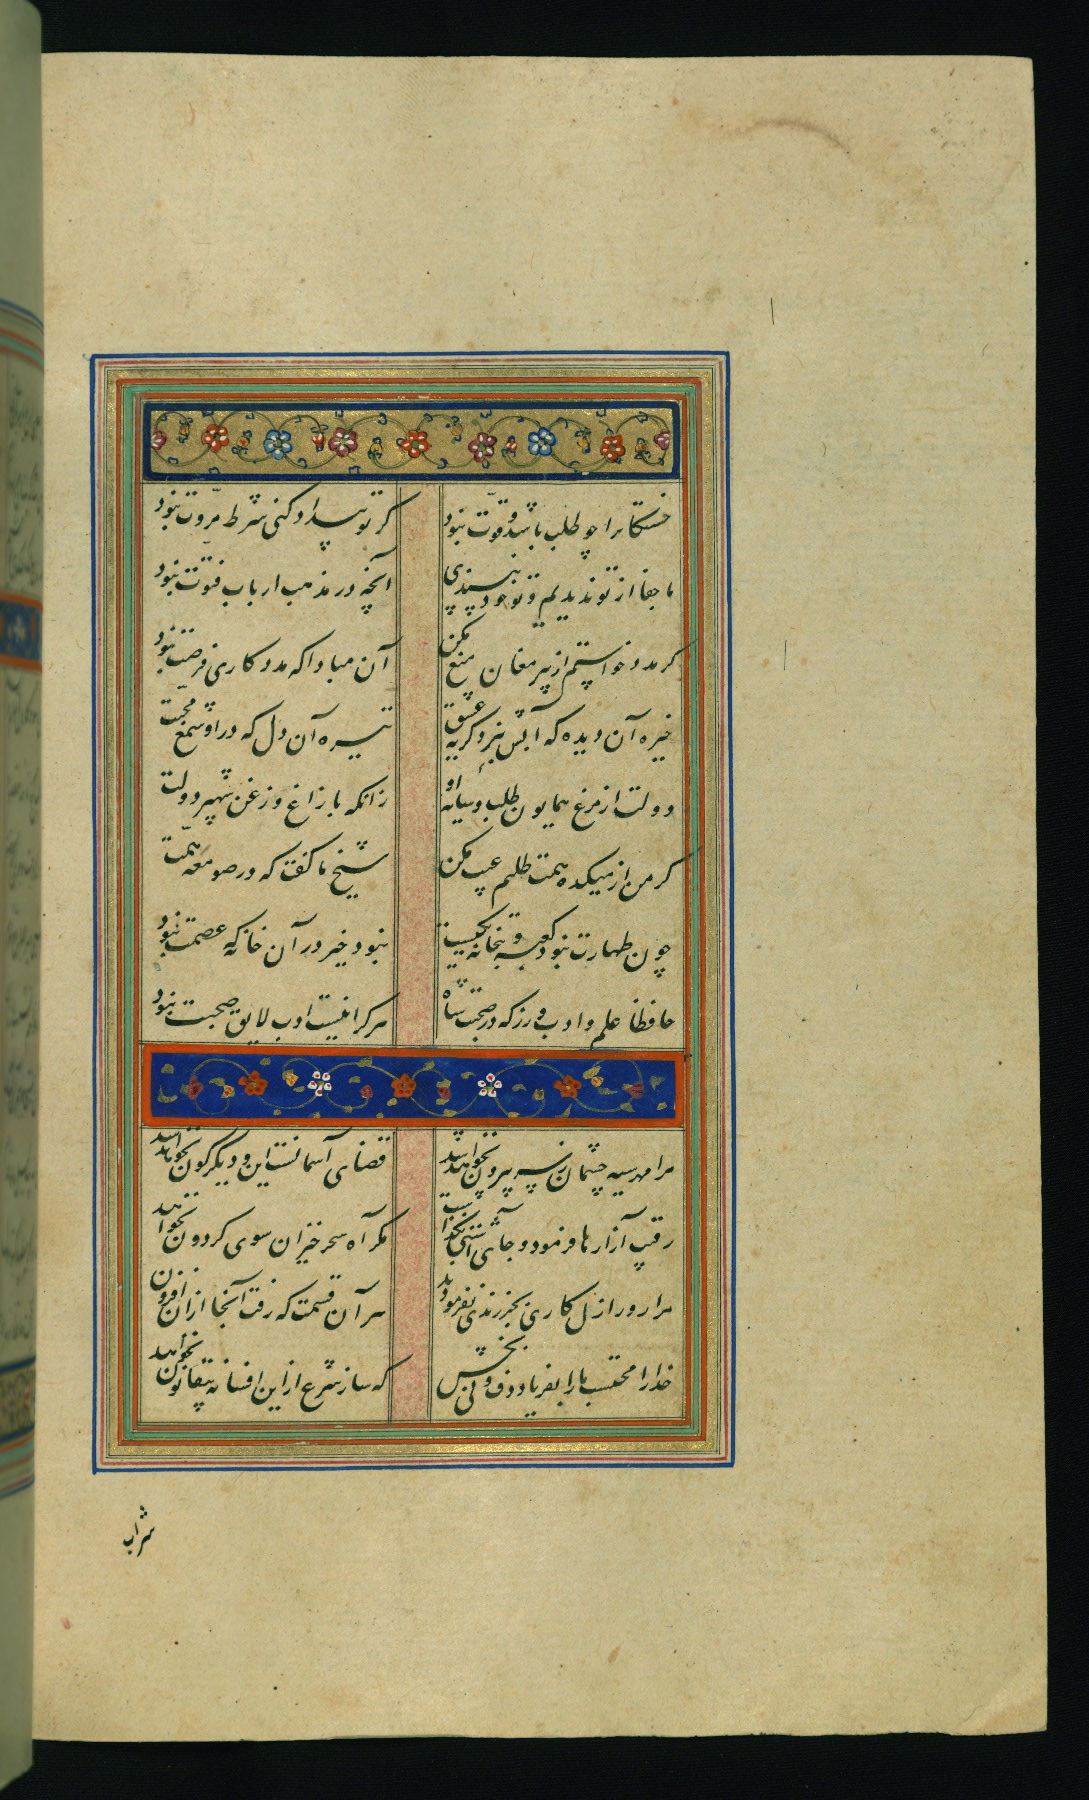 خستگانرا چو طلب باشد و قوت نبود
گر تو بیداد کنی شرط مروت نبود
ما جفا از تو ندیدیم و تو خود نپسندی
آنچه در مذهب ارباب فتوت نبود
گر مدد خواستم از پیر مغان منع مکن
آن مبادا که مددکاری فرصت نبود
خیره آن دیده که آبش نبرد گریه عشق
تیره آن دل که در او شمع محبت
دولت از مرغ همایون طلب و سایه او
زانکه با زاغ و زغن شهپر دولت
گر من از میکده همت طلبم عیب مکن
شیخ ما گفت که در صومعه همت
چون طهارت نبود کعبه و بتخانه یکیست
نبود خیر در آن خانه که عصمت نبود
حافظا علم و ادب ورز که در صحبت شاه
هر کرا نیست ادب لایق صحبت نبود
مرا مهر سیه چشمان ز سر بیرون نخواهد شد
قضای آسمانست این و دیگرگون نخواهد شد
رقیب آزارها فرمود و جای آشتی نگذاشت
مگر آه سحرخیزان سوی گردون نخواهد شد
مرا روز ازل کاری بجز رندی نفرمودند
هر آن قسمت که رفت آنجا از آن افزون
خدا را محتسب ما را بفریاد دف و نی بخش
که ساز شرع از این افسانه بیقانون نخواهد
شراب